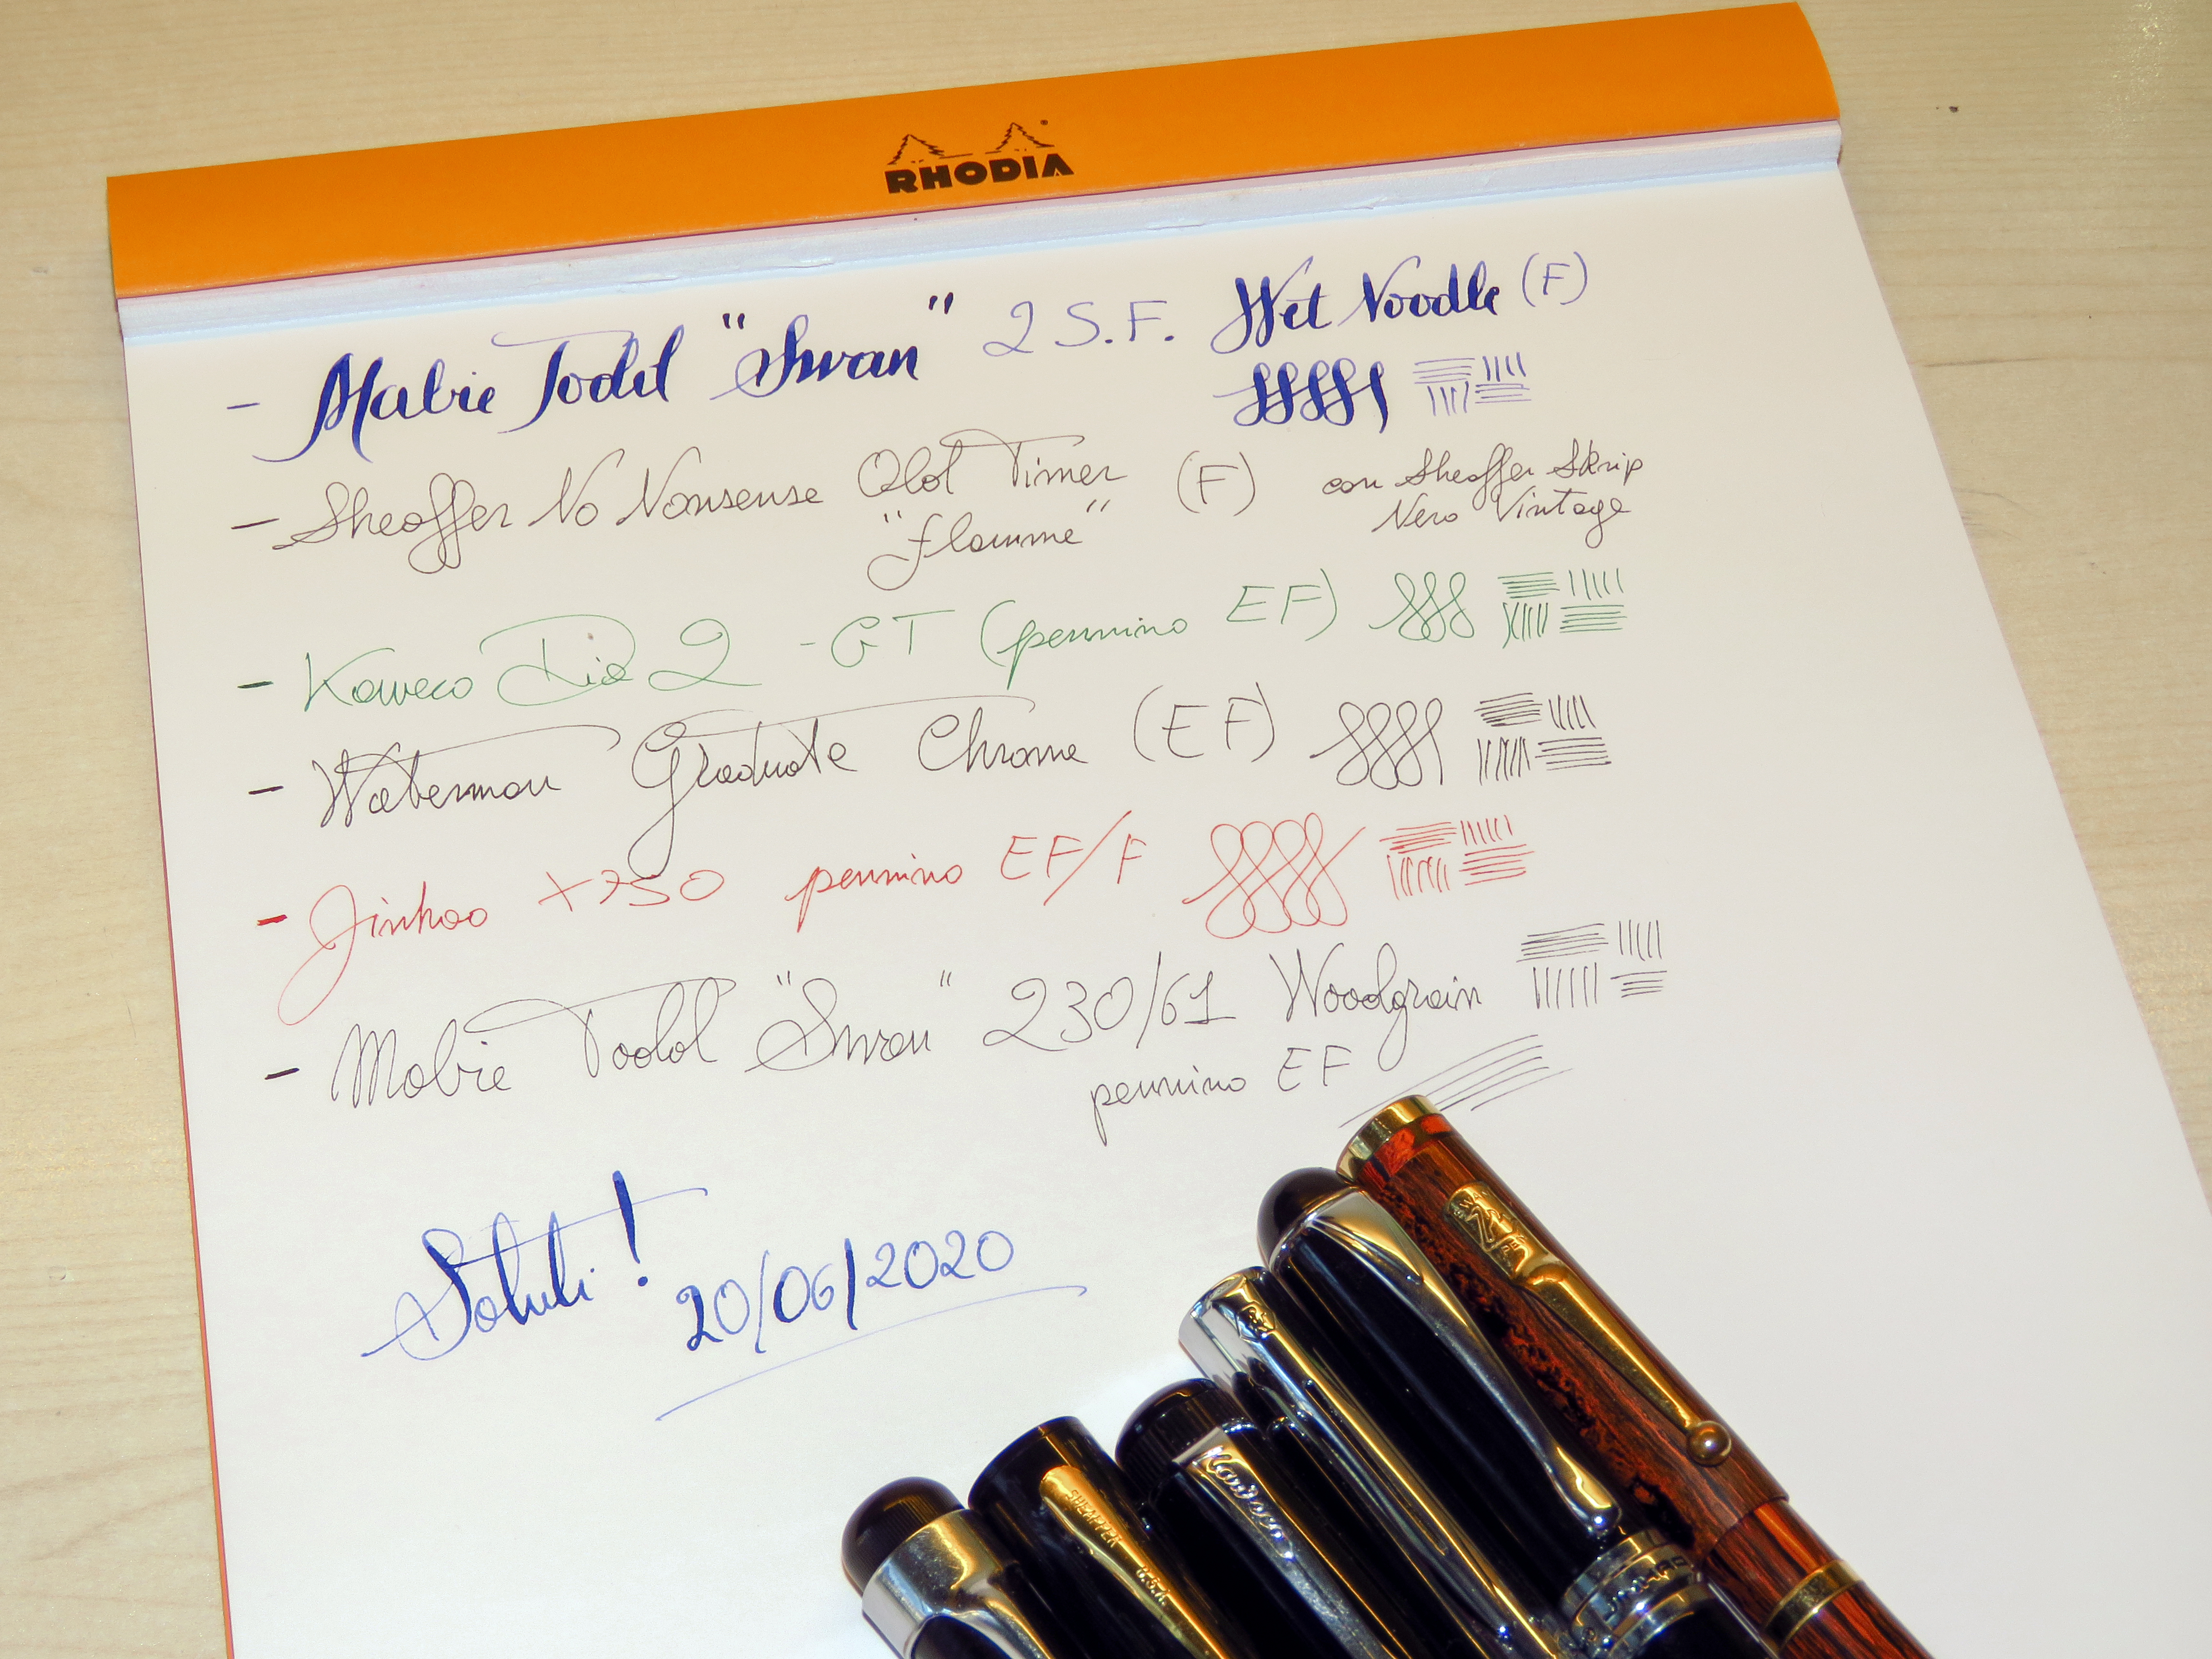 RHODIA
- Mabie Todd "Swan" 2 S.F. Wet Noodle (F)
- Sheaffer No Nonsense Old Timer (F) con Sheaffer Skrip
"flamme" Nero Vintage
- Kaweco Dia 2 - GT (pennino EF)
- Waterman Graduate Chrome (EF)
- Jinhao X750 pennino EF/F
- Mabie Todd "Swan" 230/61 Woodgrain
pennino EF
Saluti!
20/06/2020
SHEAFFER U.S.A.
Kaweco